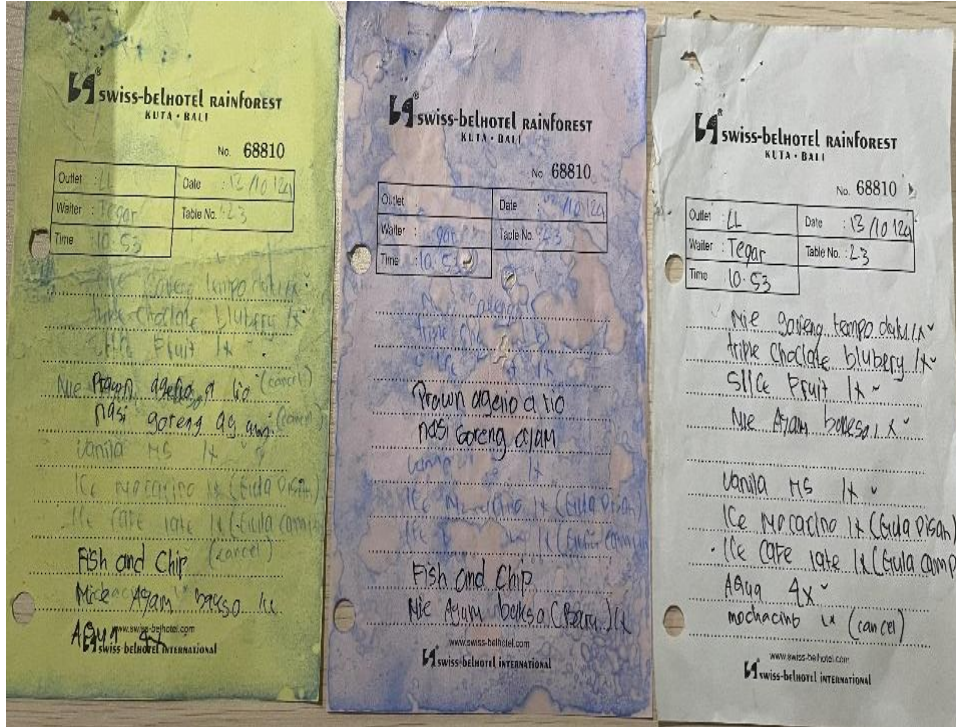 swiss-belhotel RAINFOREST
KUTA • BALI
No. 68810
Outlet : LL
Date : 13/10/24
Waiter : Tegar
Table No. : 23
Time 10.53
triple choclate blubery 1x
Fruit 1x
Nie Prawn agelio a lio (cancel)
nasi goreng ag (cancel)
Vanila MS 1x
ICe Mocacino 1x (Gula Pisah)
ICe cafe late 1x (Gula
(cancel)
Fish and Chip
Mie Ayam bakso 1x
Aqua 4x
www.swiss-belhotel.com
swiss-belhotel INTERNATIONAL
swiss-belhotel RAINFOREST
KUTA • BALI
No. 68810
Outlet
Date : /10/24
Waiter : gar
Table No. : 23
Time : 10.53
triple
1x
Prown agelio a lio
nasi Goreng ajam
1x
ICe Mocacino 1x (Gula Pisah)
ICe
Fish and Chip
Nie Ayam bakso (Baru) 1x
www.swiss-belhotel.com
swiss-belhotel INTERNATIONAL
swiss-belhotel RAINFOREST
KUTA • BALI
No. 68810
Outlet : LL
Date : 13/10/24
Waiter : Tegar
Table No. : 23
Time 10.53
Nie goreng tempo dulu 1x
triple Choclate blubery 1x
Slice Fruit 1x
Nie Ayam bakso 1x
Vanila MS 1x
ICe Mocacino 1x (Gula Pisah)
ICe Cafe late 1x (Gula camp
Aqua 4x
mochacino 1x (cancel)
www.swiss-belhotel.com
swiss-belhotel INTERNATIONAL